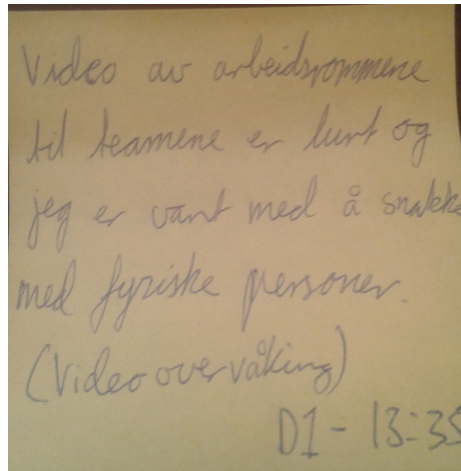 Video av arbeidsrommene
til teamene er lurt og
jeg er vant med å snakke
med fysiske personer.
(Videoovervåking)
D1 - 13:35